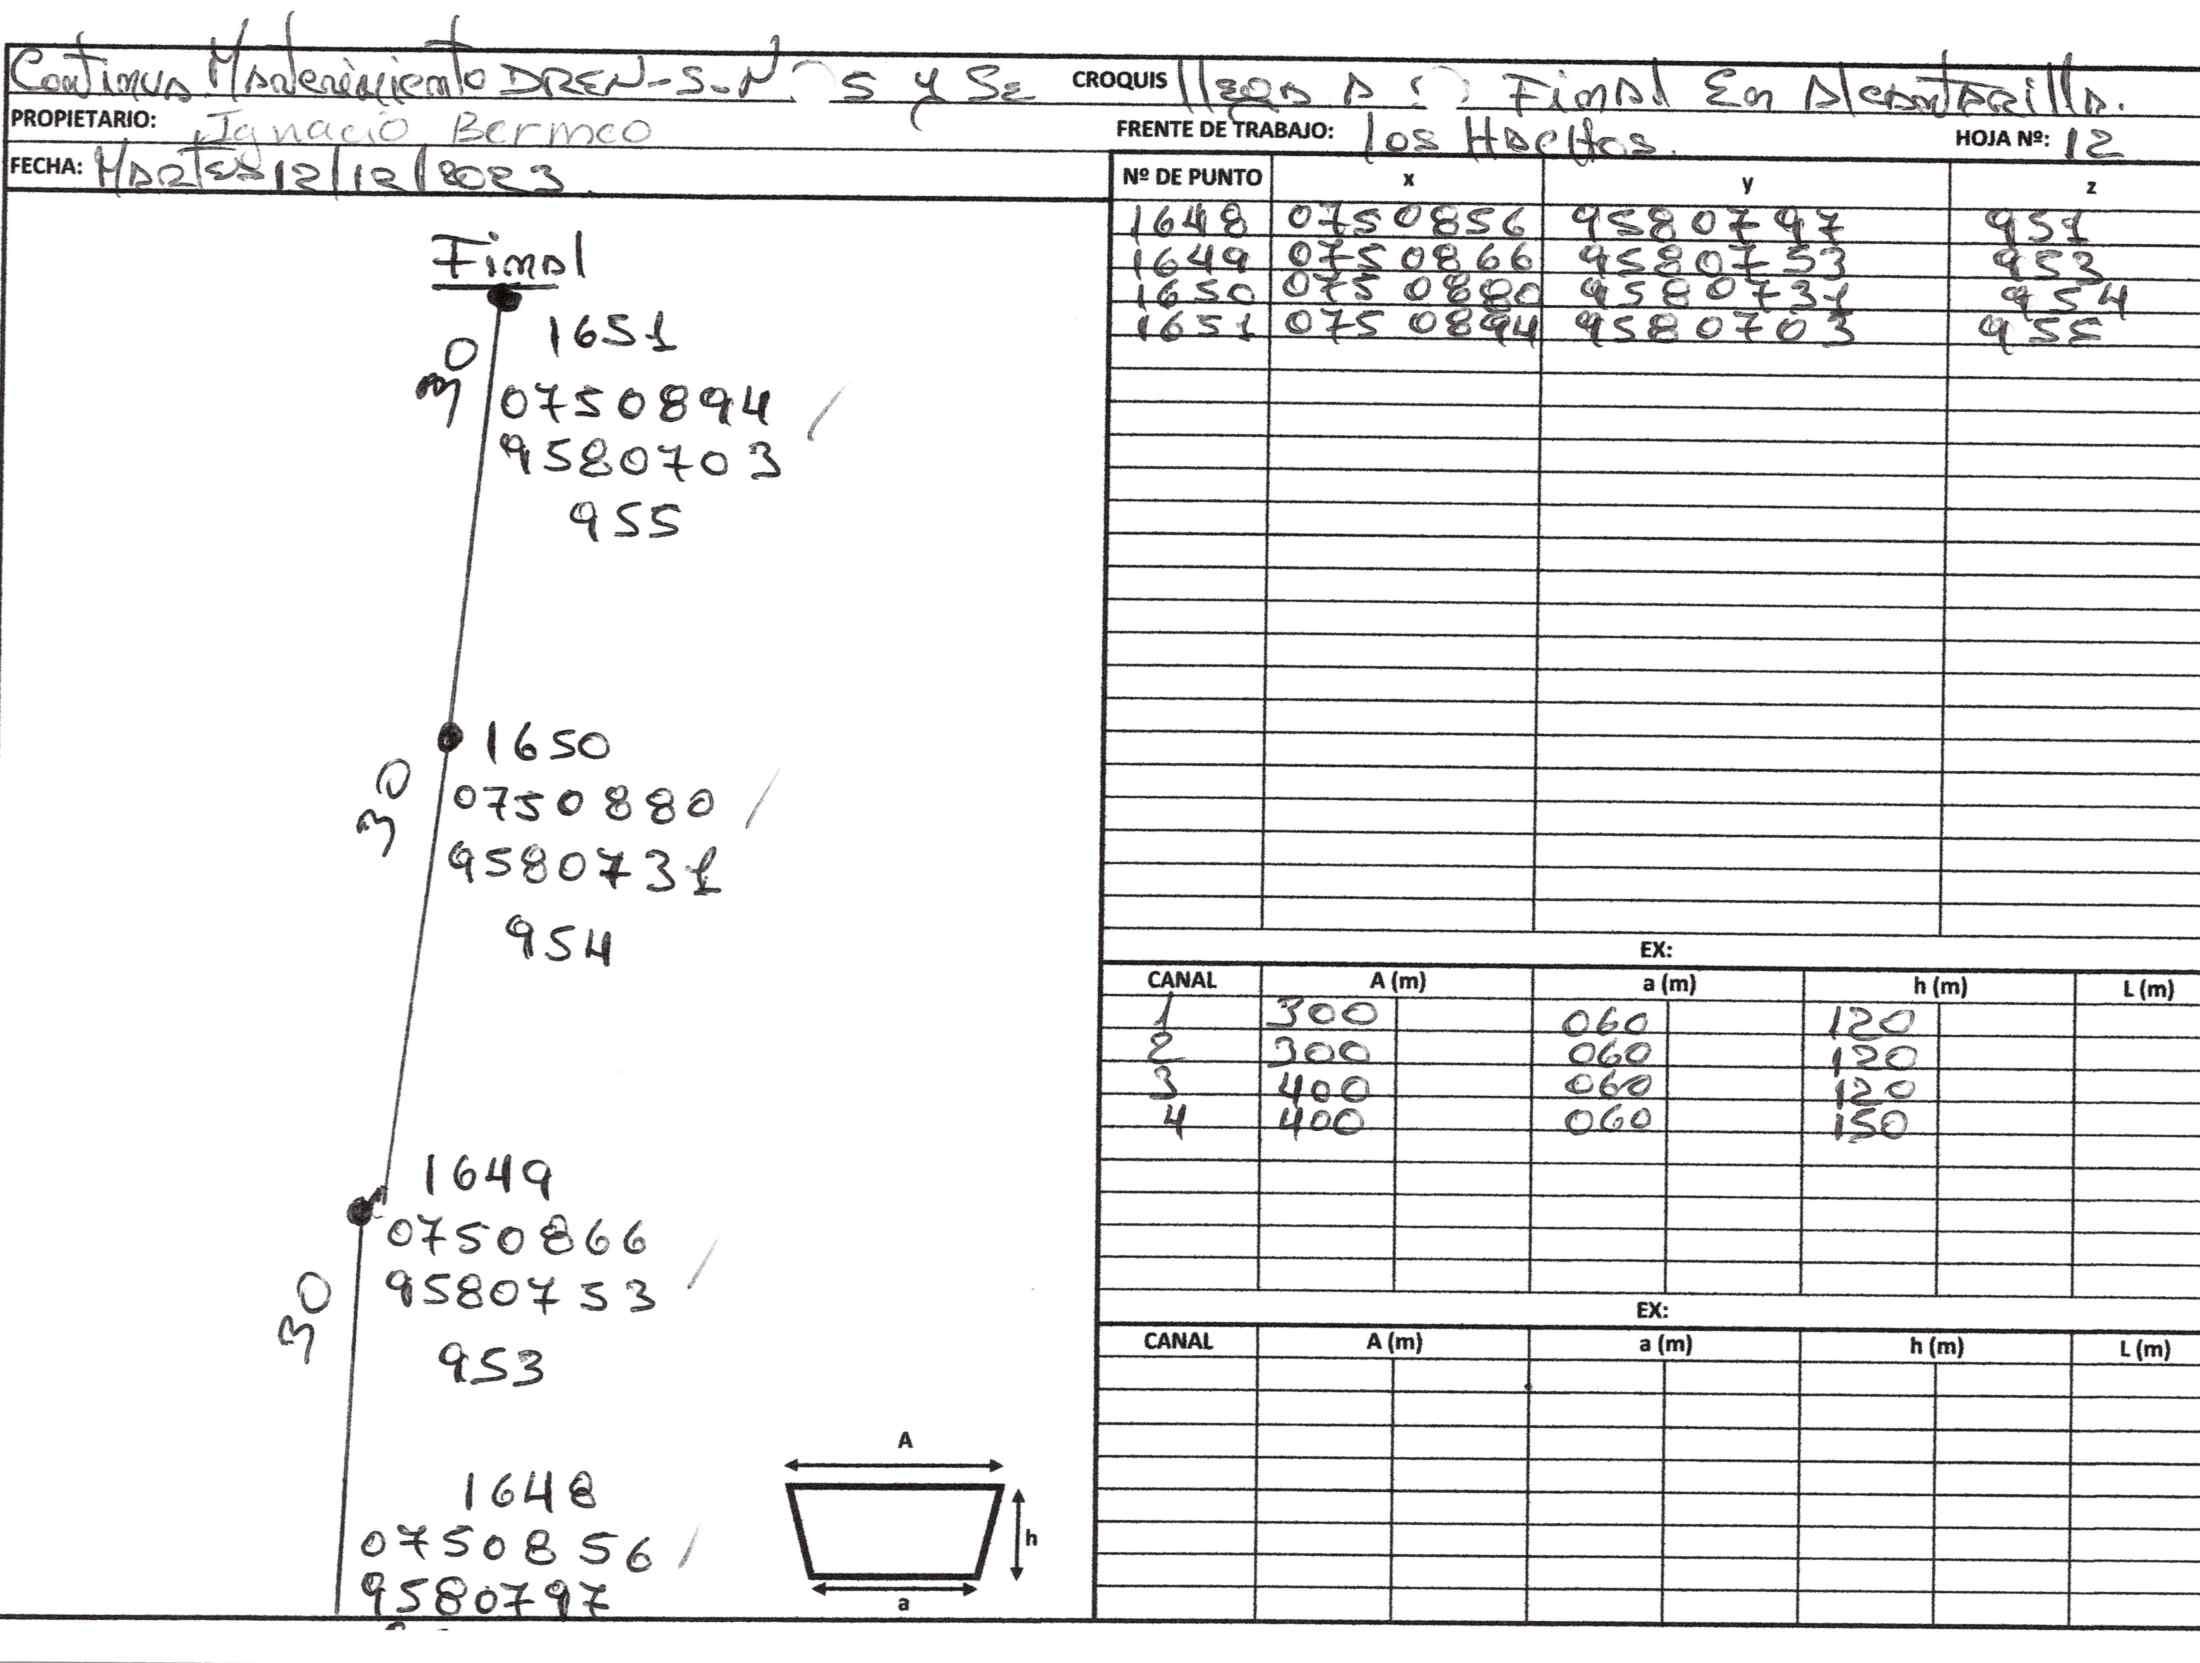 Continua Mantenimiento DREN-S-N° 5 y Se CROQUIS llega A Final En Alcantarilla.
PROPIETARIO: Ignacio Bermeo FRENTE DE TRABAJO: los HACHOS. HOJA Nº: 12
FECHA: MARTES 12/12/2023.
Nº DE PUNTO x y z
1648 0750856 9580797 951
1649 0750866 9580753 953
1650 0750880 9580731 954
1651 0750894 9580703 955
Final
1651
30
0750894
9580703
955
1650
30
0750880
9580731
954
1649
0750866
30
9580753
953
1648
0750856
9580797
A
h
a
EX:
CANAL A (m) a (m) h (m) L (m)
1 300 060 120
2 300 060 120
3 400 060 120
4 400 060 150
EX:
CANAL A (m) a (m) h (m) L (m)